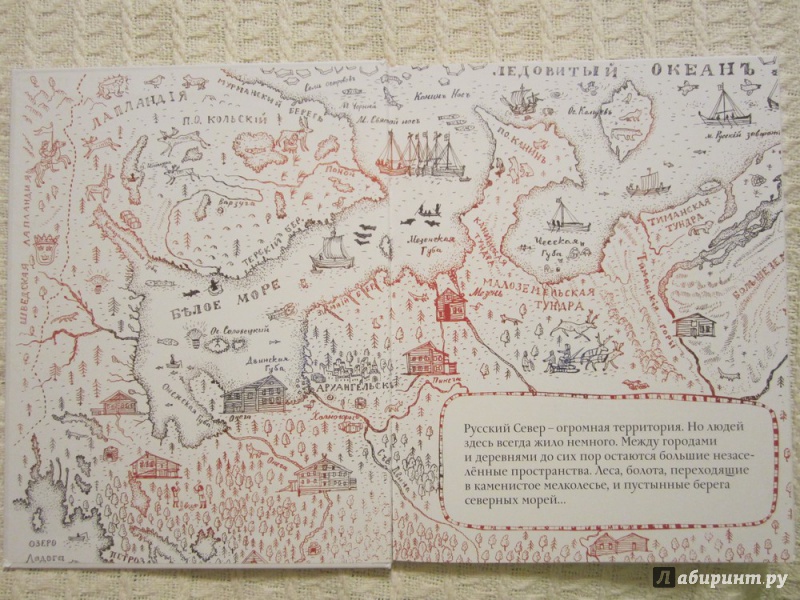 ЛЕДОВИТЫЙ ОКЕАНЪ
ЛАПЛАНДІЯ
МУРМАНСКІЙ БЕРЕГЪ
П.О. КОЛЬСКИЙ
Канинъ Носъ
М. Святой носъ
Ос. Колгуевъ
ПО. КАНИНЪ
Поной
Варзуга
ТЕРСКІЙ БЕР.
ШВЕДСКАЯ ЛАПЛАНДІЯ
БѢЛОЕ МОРЕ
Мезенская
Губа
Чесская
Губа
ТИМАНСКАЯ
ТУНДРА
МАЛОЗЕМЕЛЬСКАЯ
ТУНДРА
Мезень
Ос. Соловецкий
Двинская
Губа
Онежская Губа
АРХАНГЕЛЬСКЪ
Пинега
Онега
Холмогоры
ОЗЕРО
Ладога
Русский Север – огромная территория. Но людей
здесь всегда жило немного. Между городами
и деревнями до сих пор остаются большие незасе-
лённые пространства. Леса, болота, переходящие
в каменистое мелколесье, и пустынные берега
северных морей...
Лабиринт.ру